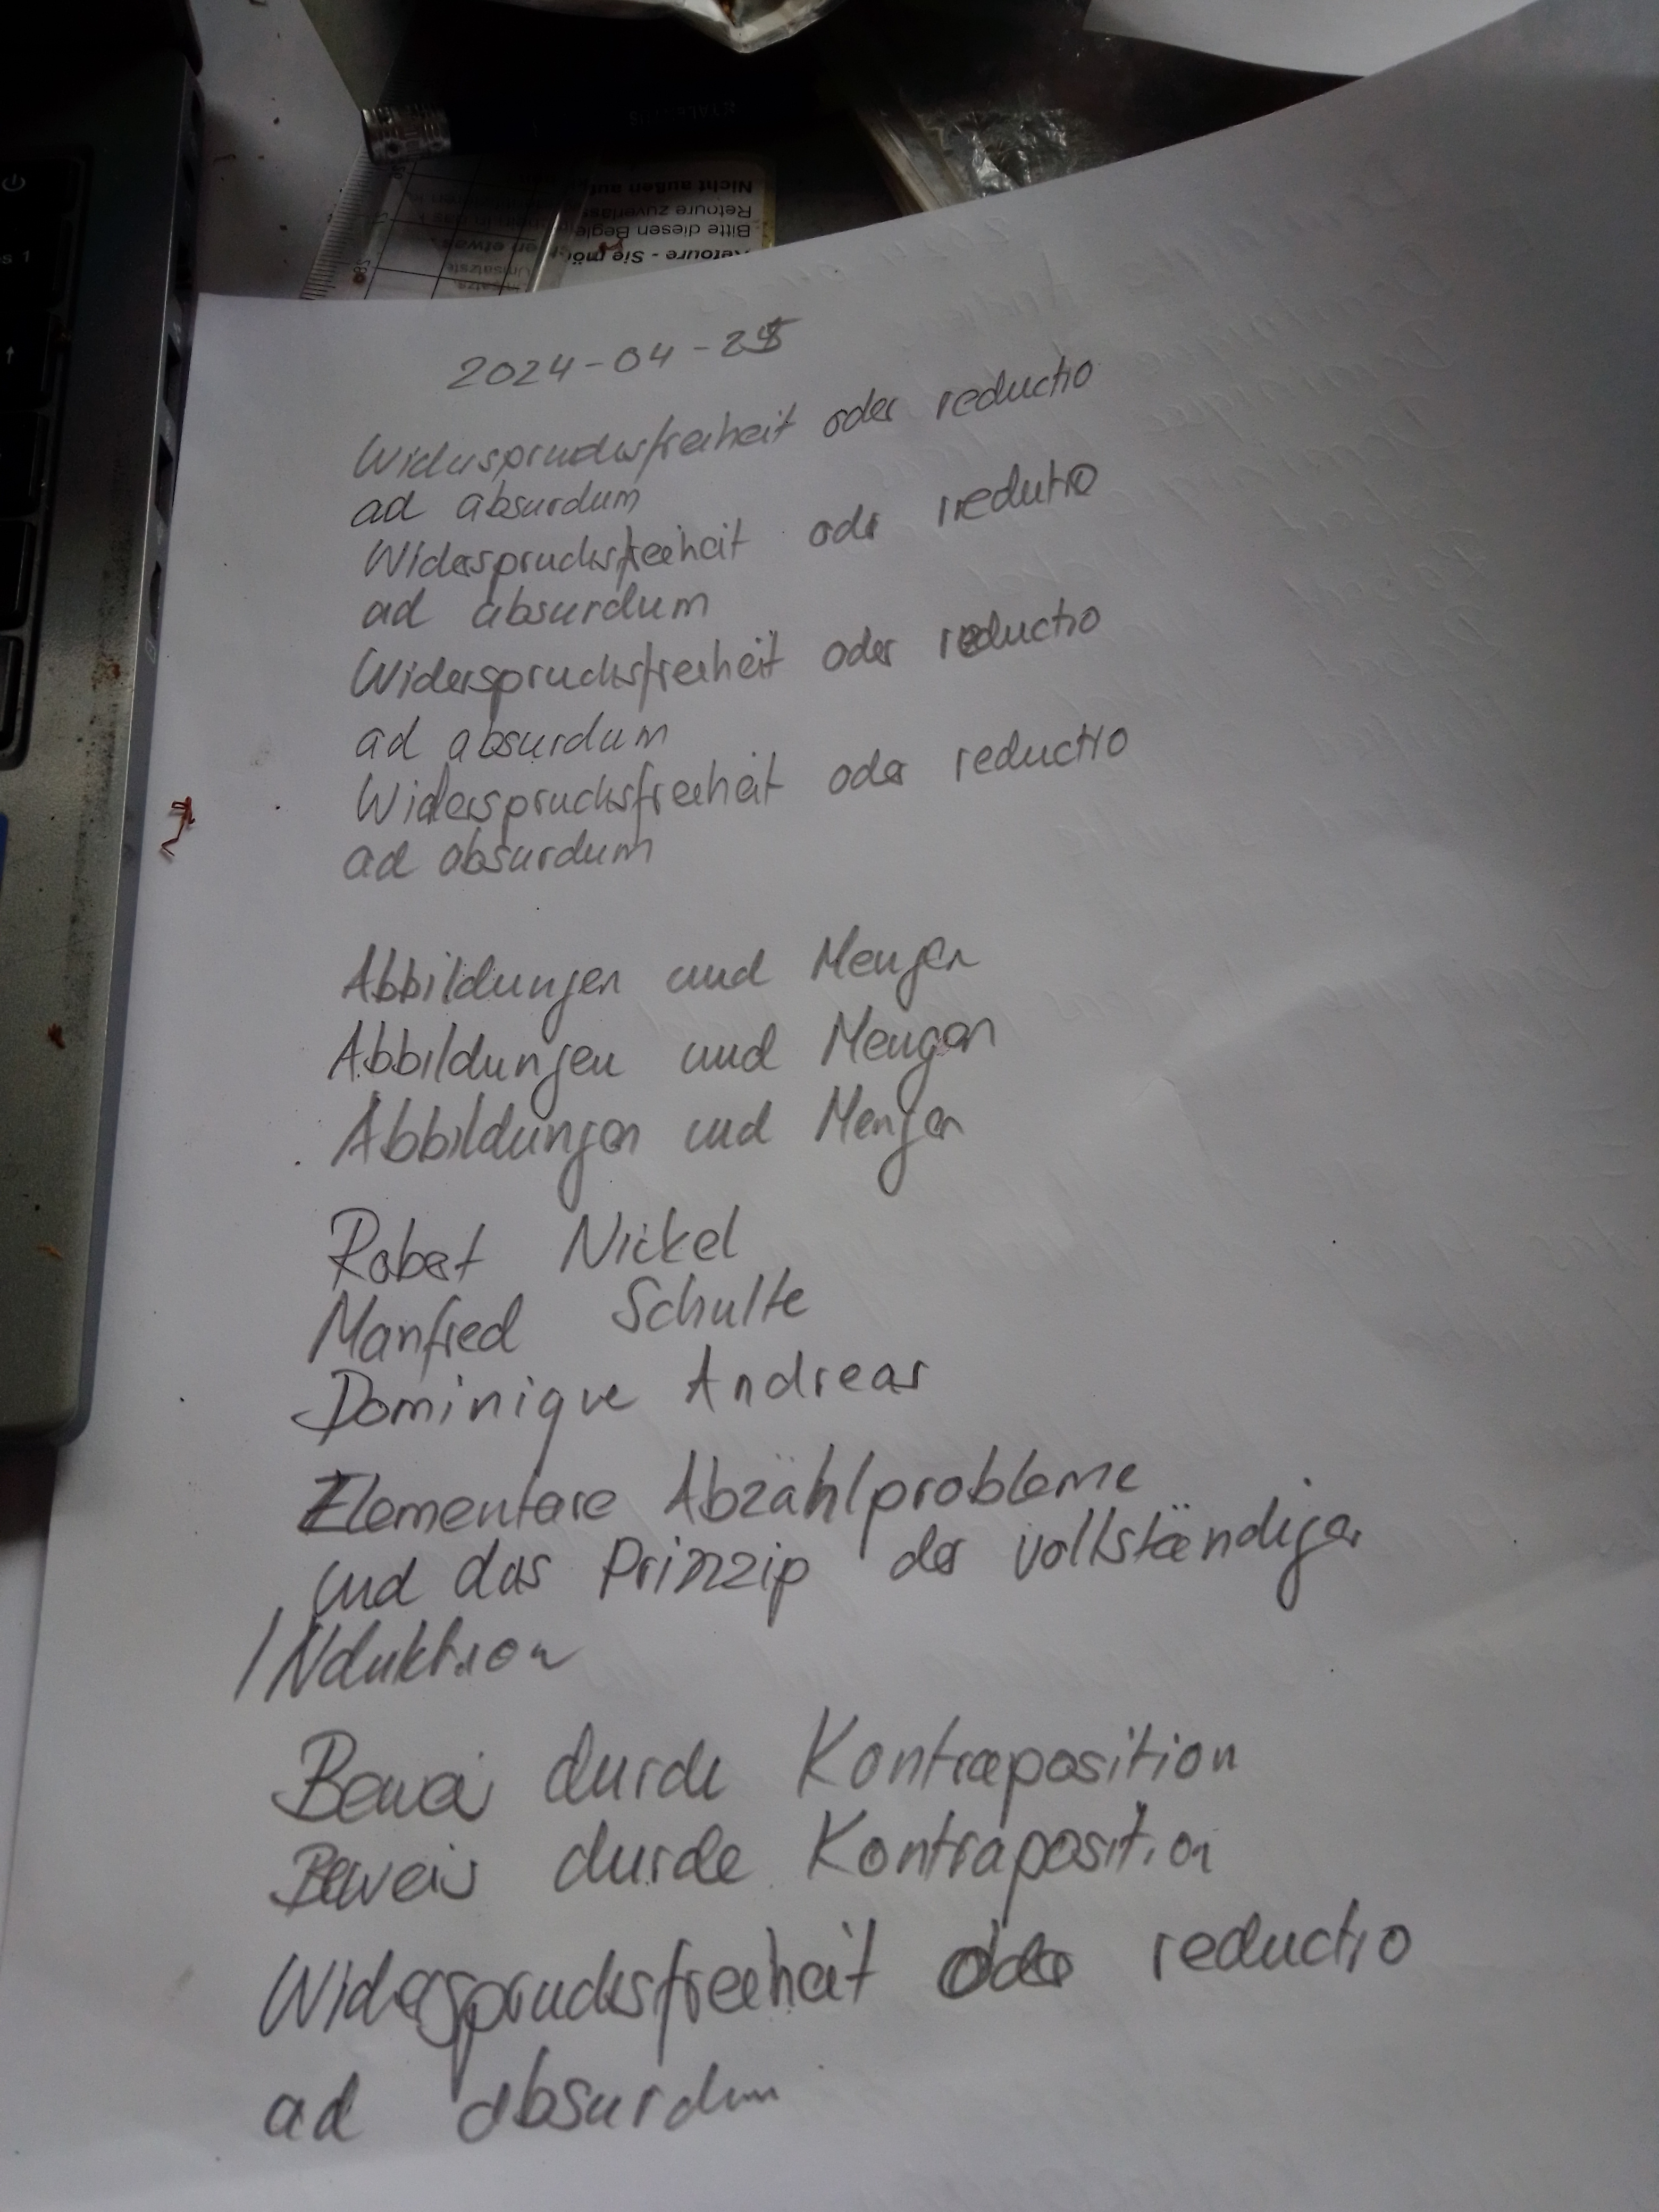 2024-04-25
Widerspruchsfreiheit oder reductio
ad absurdum
Widerspruchsfreiheit oder redutio
ad absurdum
Widerspruchsfreiheit oder reductio
ad absurdum
Widerspruchsfreiheit oder reductio
ad absurdum
Abbildungen und Mengen
Abbildungen und Mengen
Abbildungen und Mengen
Robert Nickel
Manfred Schulte
Dominique Andreas
Elementare Abzählprobleme
und das Prinzip der vollständigen
INduktion
Beweis durch Kontraposition
Beweis durch Kontraposition
Widerspruchsfreiheit oder reductio
ad absurdum
Nicht außen auf
Retoure zuverläs
Bitte diesen Beglei
Retoure - Sie möc
en etwas